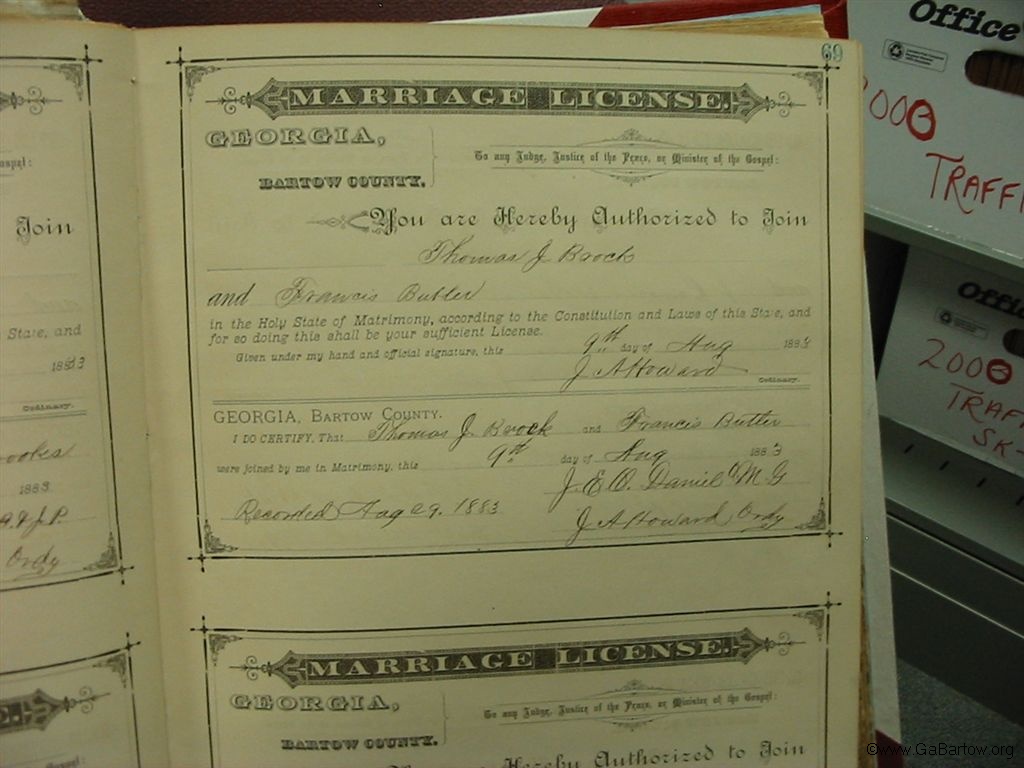 69
MARRIAGE LICENSE.
GEORGIA,
BARTOW COUNTY.
To any Judge, Justice of the Peace, or Minister of the Gospel:
You are Hereby Authorized to Join
Thomas J Brock
and Francis Butler
in the Holy State of Matrimony, according to the Constitution and Laws of this State, and
for so doing this shall be your sufficient License.
Given under my hand and official signature, this 9th day of Aug 1883
J A Howard
Ordinary.
GEORGIA, BARTOW COUNTY.
I DO CERTIFY, That Thomas J. Brock and Francis Butler
were joined by me in Matrimony, this 9th day of Aug 1883
J. E. O. Daniel M G
Recorded Aug 29. 1883
J A Howard, Ordy
MARRIAGE LICENSE.
GEORGIA,
BARTOW COUNTY.
To any Judge, Justice of the Peace, or Minister of the Gospel:
You are Hereby Authorized to Join
ospel:
Join
State, and
1883
Ordinary.
1883
J.P.
Ordy
Office
2000
TRAFFI
Offic
2000
TRAF
SK-
©www.GaBartow.org